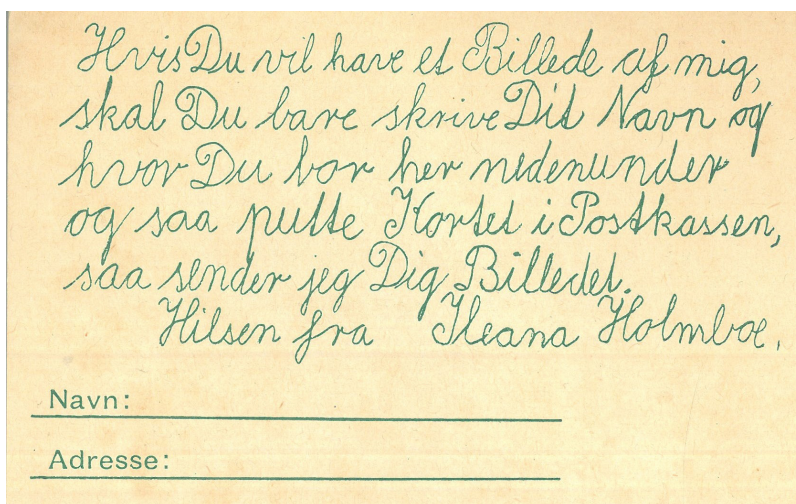 Hvis Du vil have et Billede af mig,
skal Du bare skrive Dit Navn og
hvor Du bor her nedenunder
og saa putte Kortet i Postkassen,
saa sender jeg Dig Billedet.
Hilsen fra Ileana Holmboe.
Navn:
Adresse: